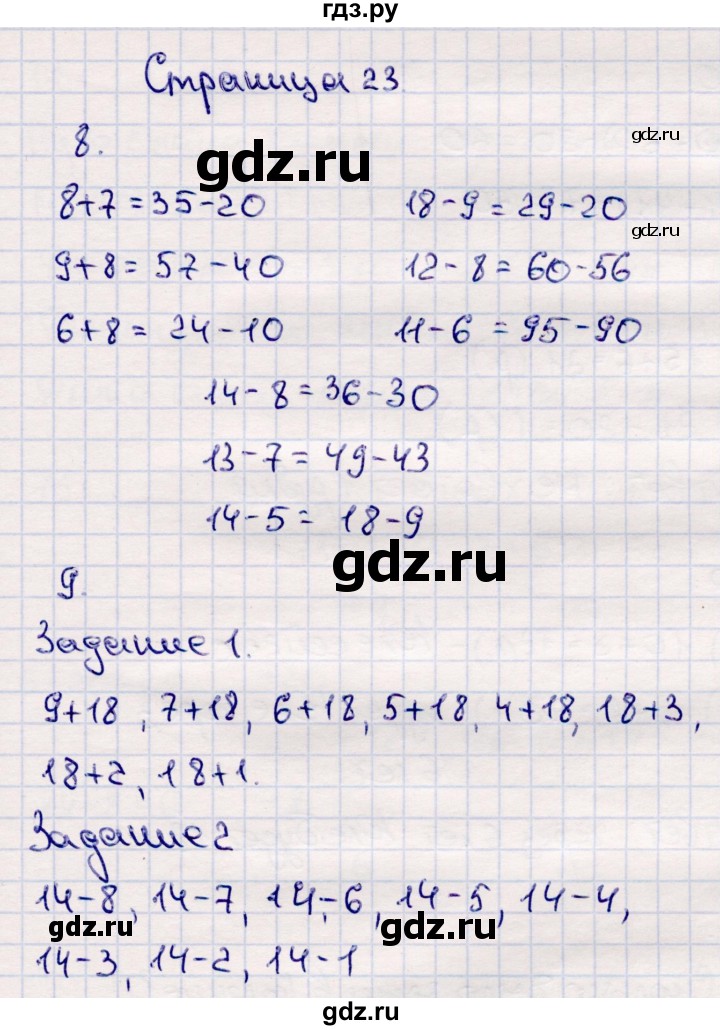 гдз.ру
Страница 23
gdz.ru
8.
gdz.ru
8+7=35-20 18-9=29-20
gdz.ru
9+8=57-40 12-8=60-56
6+8=24-10 11-6=95-90
14-8=36-30
13-7=49-43
14-5=18-9
gdz.ru
9.
Задание 1.
9+18, 7+18, 6+18, 5+18, 4+18, 18+3,
18+2, 18+1.
Задание 2
14-8, 14-7, 14-6, 14-5, 14-4,
gdz.ru gdz.ru
14-3, 14-2, 14-1
gdz.ru